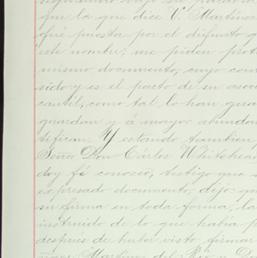 que la que dice V. Martinez
fué puesta por el difunto q
este nombre; me piden prot
mismo documento, cuyo con
sido y es el pacto de su
cual, como tal lo han gua
guardan y á mayor abunda
tifican. Y estando tambien
Señor Don Carlos Whitehea
doy fé conozco, testigo que
espresado documento, dijo qu
su firma en toda forma, la
instruido de lo que habia p
despues de haber visto firmar
Martinez del Rio y Don